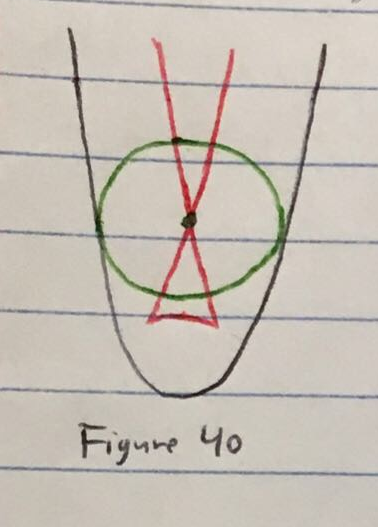 Figure 40